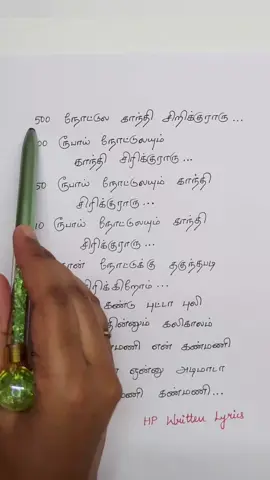 500 நோட்டுல காந்தி சிரிக்குராரு ...
00 ரூபாய் நோட்டுலயும்
காந்தி சிரிக்குராரு ...
50 ரூபாய் நோட்டுலயும் காந்தி
சிரிக்குராரு ...
10 ரூபாய் நோட்டுலயும் காந்தி
சிரிக்குராரு ...
நோட்டுக்கு தகுந்தபடி
சிரிக்கிறோம் ...
கண்டு புட்டா புலி
தின்னும் கலிகாலம்
என் கண்மணி
ஒன்னு அடிமாடா
கண்மணி ...
HP Written Lyrics